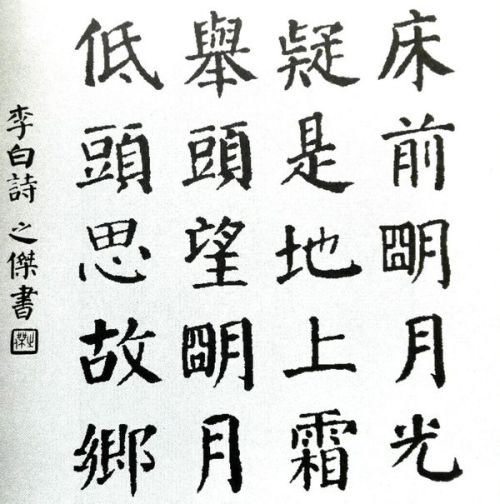 床前朙月光
疑是地上霜
舉頭望朙月
低頭思故鄉
李白詩 之傑書
之傑